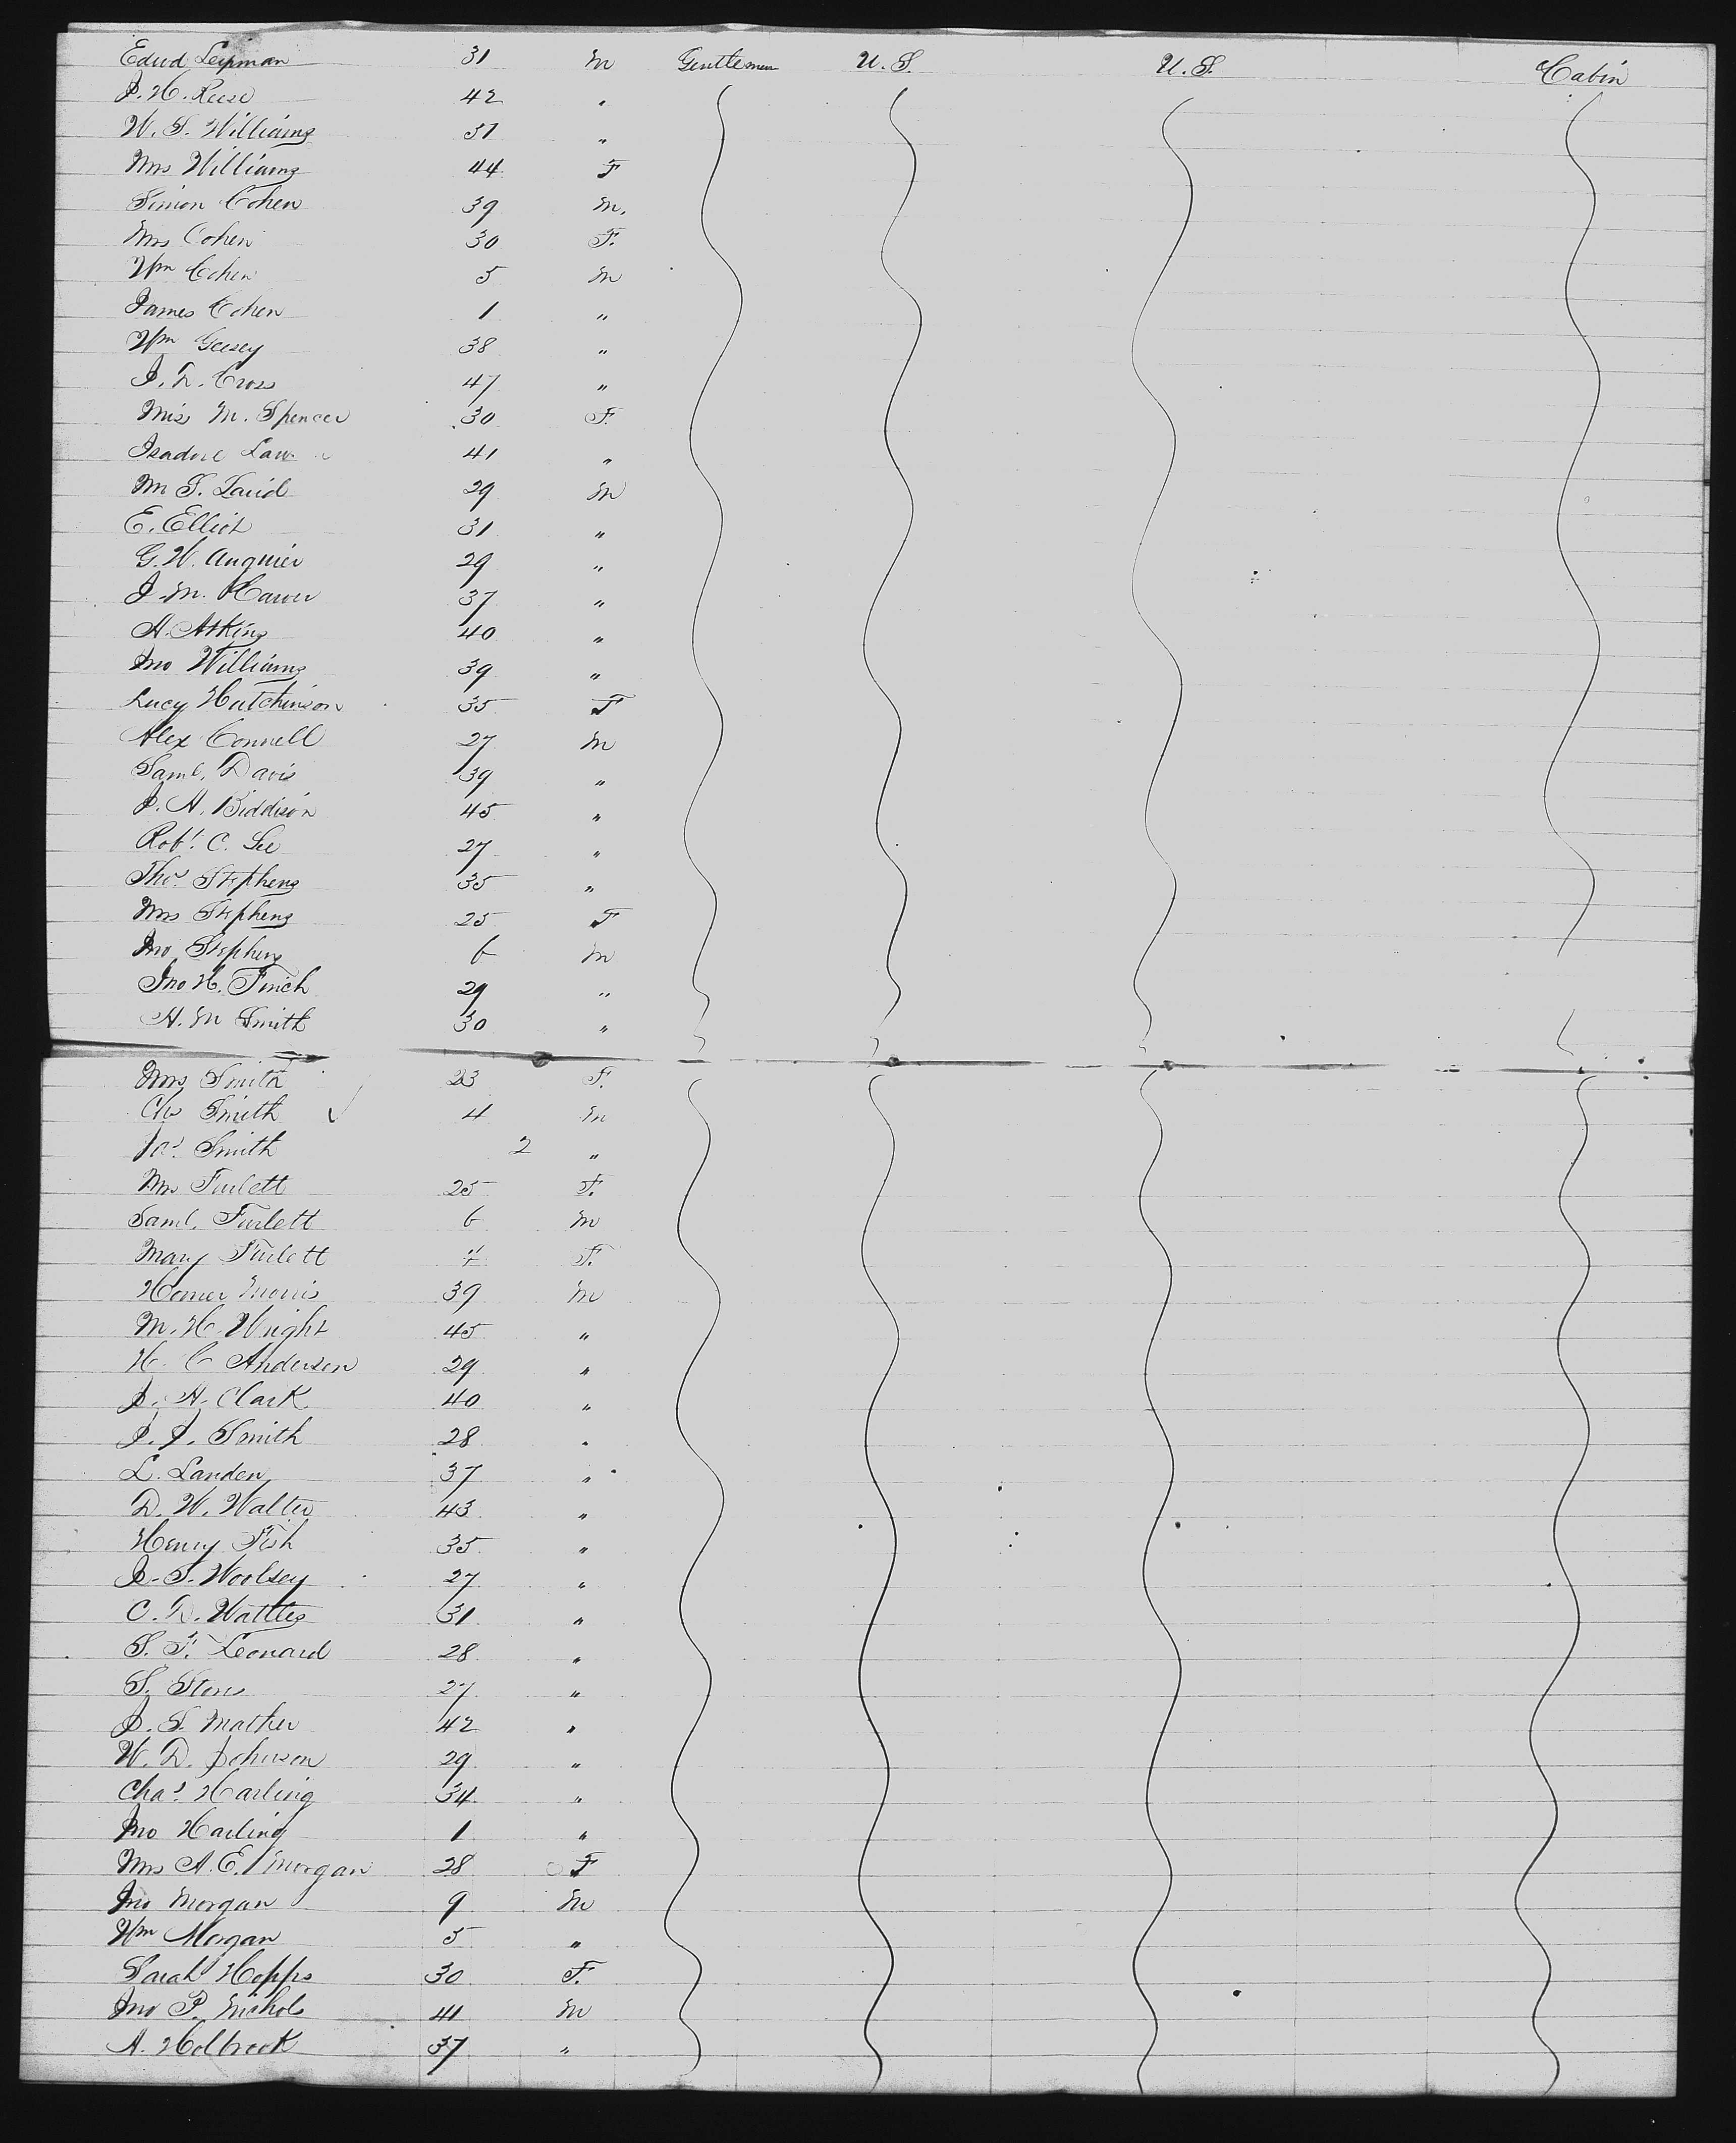 Edwd Leipman 31 m Gentlemen U.S. U.S. Cabin
J. H. Reese 42 "
W. S. Williams 51 "
Mrs Williams 44 F
Simon Cohen 39 m.
Mrs Cohen 30 F.
Wm Cohen 5 m
James Cohen 1 "
Wm Geesey 38 "
J. D. Cross 47 "
Miss M. Spencer 30 F.
Isadore 41 "
M S. David 29 m
E. Elliot 31 "
G. W. 29 "
J. M. 37 "
A. Atkins 40 "
Jno Williams 39 "
Lucy Hutchinson 35 F
Alex Connell 27 m
Saml. Davis 39 "
J. A. Biddison 45 "
Robt. C. Lee 27 "
Thos. Stephens 35 "
Mrs Stephens 25 F
Jno Stephens 6 m
Jno H. Finch 29 "
A. M Smith 30 "
Mrs Smith 23 F.
Chs Smith 4 m
Jas. Smith 2 "
Mrs Furlett 25 F.
Saml. Furlett 6 m
Mary Furlett 4 F.
Homer Morris 39 m
M. H. Wright 45 "
H. C Anderson 29 "
J. A. Clark 40 "
J. J. Smith 28 "
L. Landen 37 "
D. W. Walter 43 "
Henry Fish 35 "
J. S. Woolsey 27 "
C. D. Wattles 31 "
S. F. Leonard 28 "
S. 27 "
J. S. Mather 42 "
W. D. Johnson 29 "
Chas. Harling 34 "
Jno Harling 1 "
Mrs A. E. Morgan 28 F
Jno Morgan 9 m
Wm Morgan 5 "
Sarah Hopps 30 F.
Jno P. Nichols 41 m
A. Holbrook 37 "